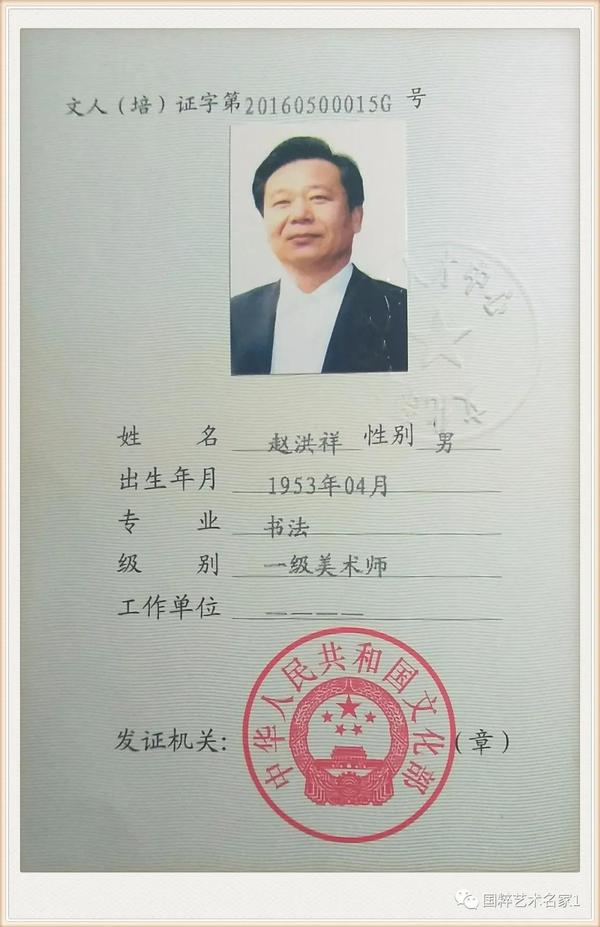 文人（培）证字第20160500015G 号
姓 名 赵洪祥 性别 男
出生年月 1953年04月
专 业 书法
级 别 一级美术师
工作单位 ————
中华人民共和国文化部
发证机关: （章）
国粹艺术名家1